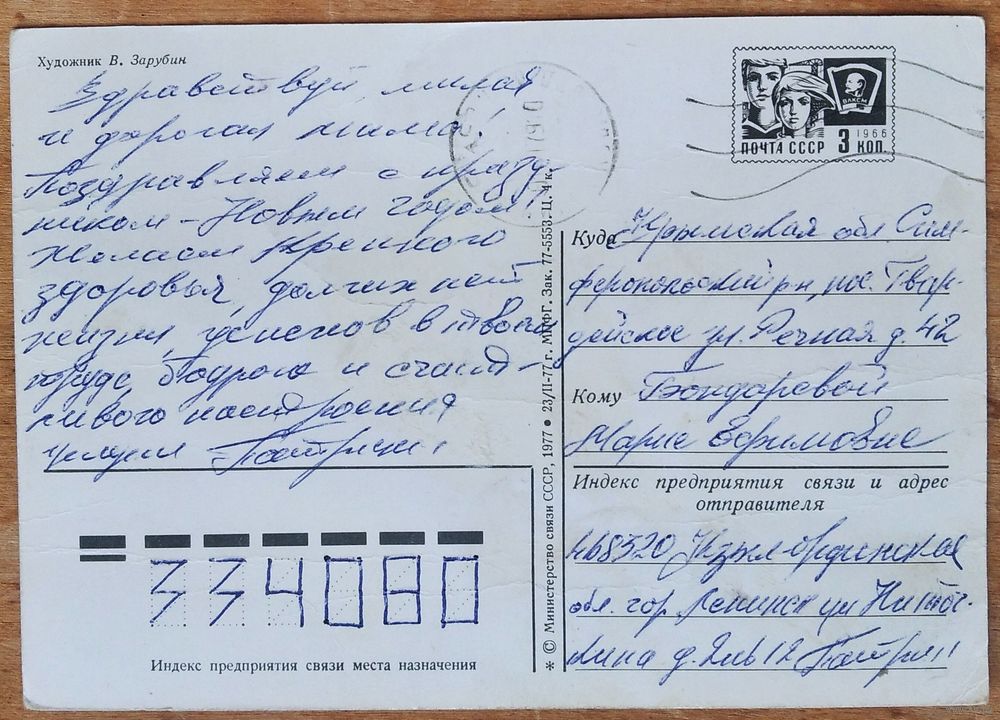 Художник В. Зарубин
Здравствуй, милая
и дорогая мама!
Поздравляем с празд-
ником – Новым годом!
Желаем крепкого
здоровья, долгих лет
жизни, успехов в твоём
труде, бодрого и счаст-
ливого настроения
целуем
ПОЧТА СССР 3 КОП.
1966
ВЛКСМ
Куда Крымская обл Сим-
феропольский р-н, пос. Твар-
дейское ул. Речная д. 42
Кому Бондаревой
Марие Ефимовне
Индекс предприятия связи и адрес
отправителя
468320 Кзыл-ординская
обл. гор. Ленинск ул
д. 2 кв 12
334080
Индекс предприятия связи места назначения
* © Министерство связи СССР, 1977 • 23/II-77 г. МПФГ. Зак. 77-5553. Ц. 4 к.